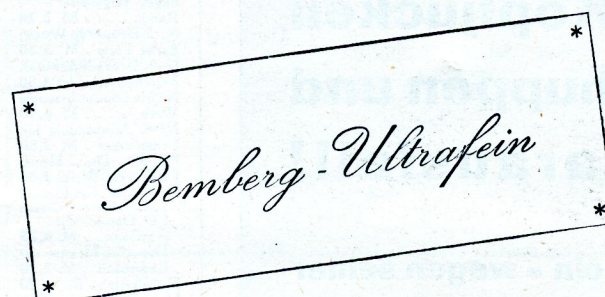 Bemberg - Ultrafein